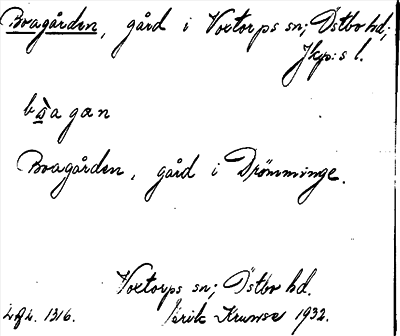 Boagården, gård i Voxtorps sn; Östbo hd;
Jkp:s l.
bòagan
Boagården, gård i Drömminge.
Voxtorps sn; Östbo hd.
Erik Krumse 1932.